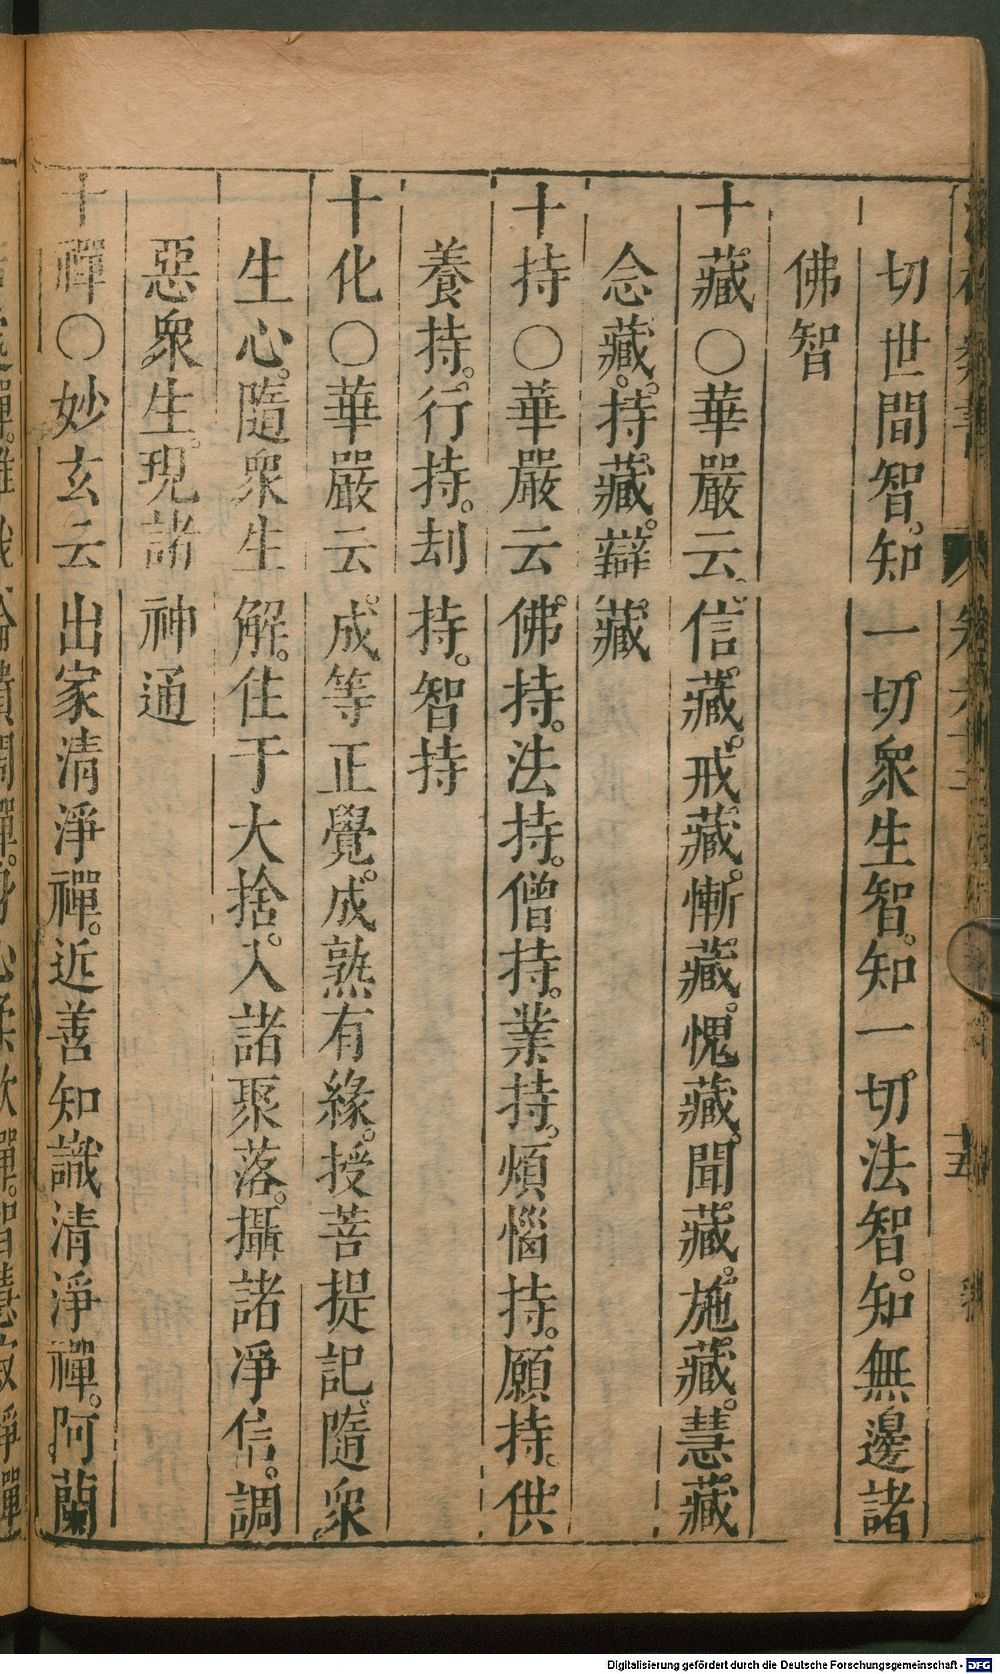 切世間智。知一切衆生智。知一切法智。知無邊諸
佛智
十藏○華嚴云。信藏。戒藏。慚藏。愧藏。聞藏。施藏。慧藏
念藏。持藏。辯藏
十持○華嚴云佛持。法持。僧持。業持。煩惱持。願持。供
養持。行持。刦持。智持
十化○華嚴云。成等正覺。成熟有緣。授菩提記。隨衆
生心。隨衆生解。住于大捨。入諸聚落。攝諸淨信。調
惡衆生。現諸神通
十禪○妙玄云出家清淨禪。近善知識清淨禪。阿蘭
Digitalisierung gefördert durch die Deutsche Forschungsgemeinschaft - DFG